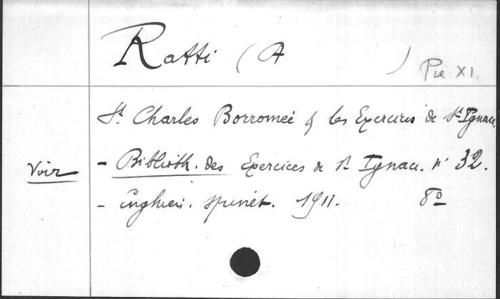 Ratti (A ) Pie XI.
St Charles Borromée & les Exercices de St Ignace
Voir - Biblioth. des Exercices de St Ignace. n° 32.
- Enghien. Spinet. 1911. 8º